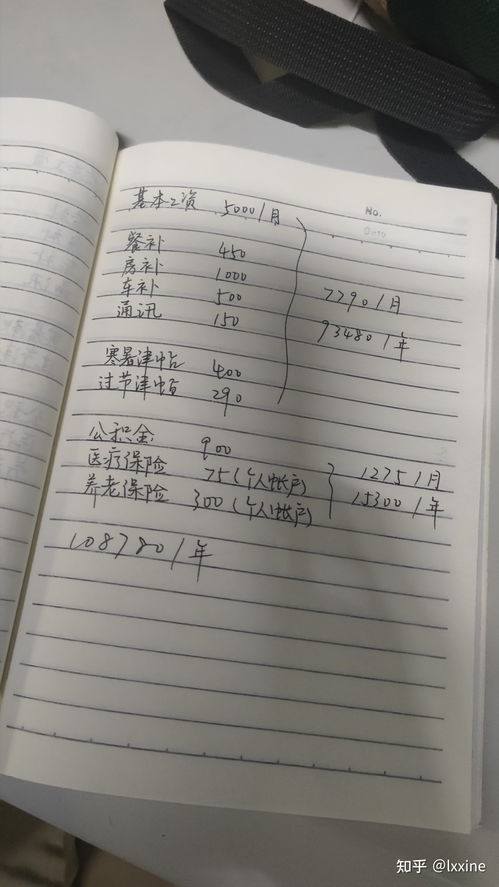 No.
Date
基本工资 5000/月
餐补 450
房补 1000
车补 500
通讯 150
寒暑津帖 400
过节津帖 290
7790/月
93480/年
公积金: 900
医疗保险 75(个人帐户)
养老保险 300(个人帐户)
1275/月
15300/年
108780/年
知乎 @lxxine